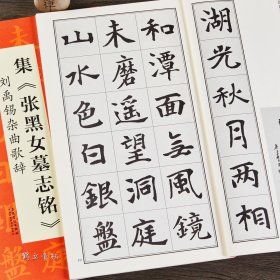 湖光秋月兩相
和潭面無風鏡
未磨遥望洞庭
山水色白銀盤
集《张黑女墓志铭》
刘禹锡杂曲歌辞